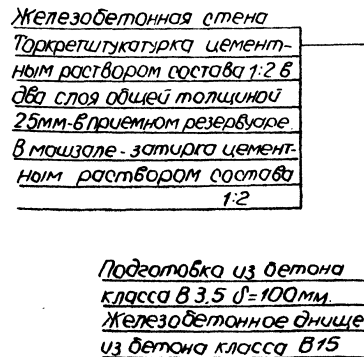 Железобетонная стена
Торкретштукатурка цемент-
ным раствором состава 1:2 в
два слоя общей толщиной
25мм-в приемном резервуаре.
В машзале - затирка цемент-
ным раствором состава
1:2
Подготовка из бетона
класса В 3,5 δ=100мм.
Железобетонное днище
из бетона класса В15